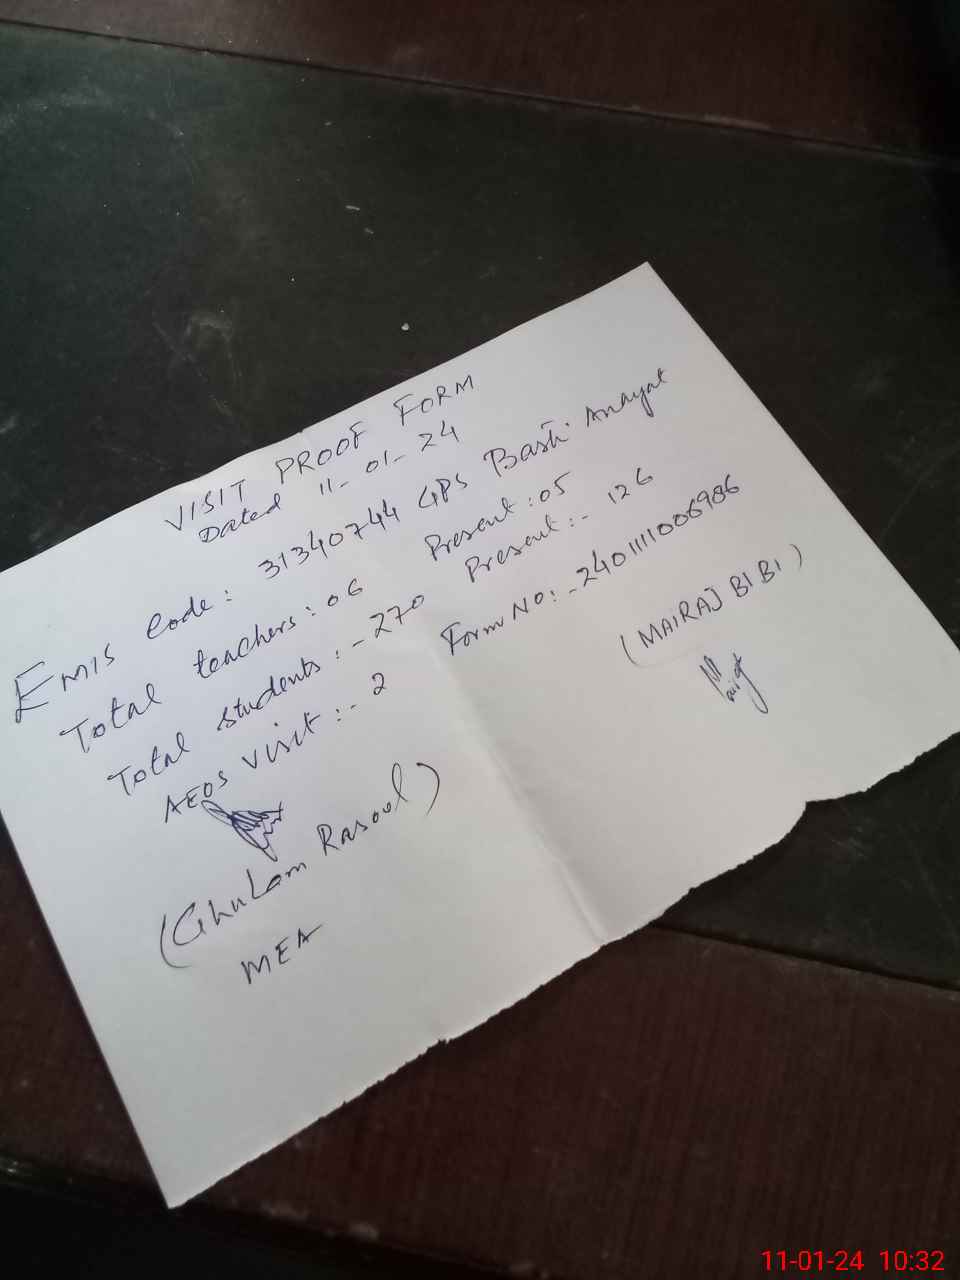 VISIT PROOF FORM
Dated 11-01-24
EMIS Code: 31340744 GPS Basti Anayat
Total teachers: 06 Present: 05
Total students:- 270 Present:- 126
AEOS Visit:- 2 Form No:- 2401111006986
(MAIRAJ BIBI)
(Ghulam Rasool)
MEA
11-01-24 10:32